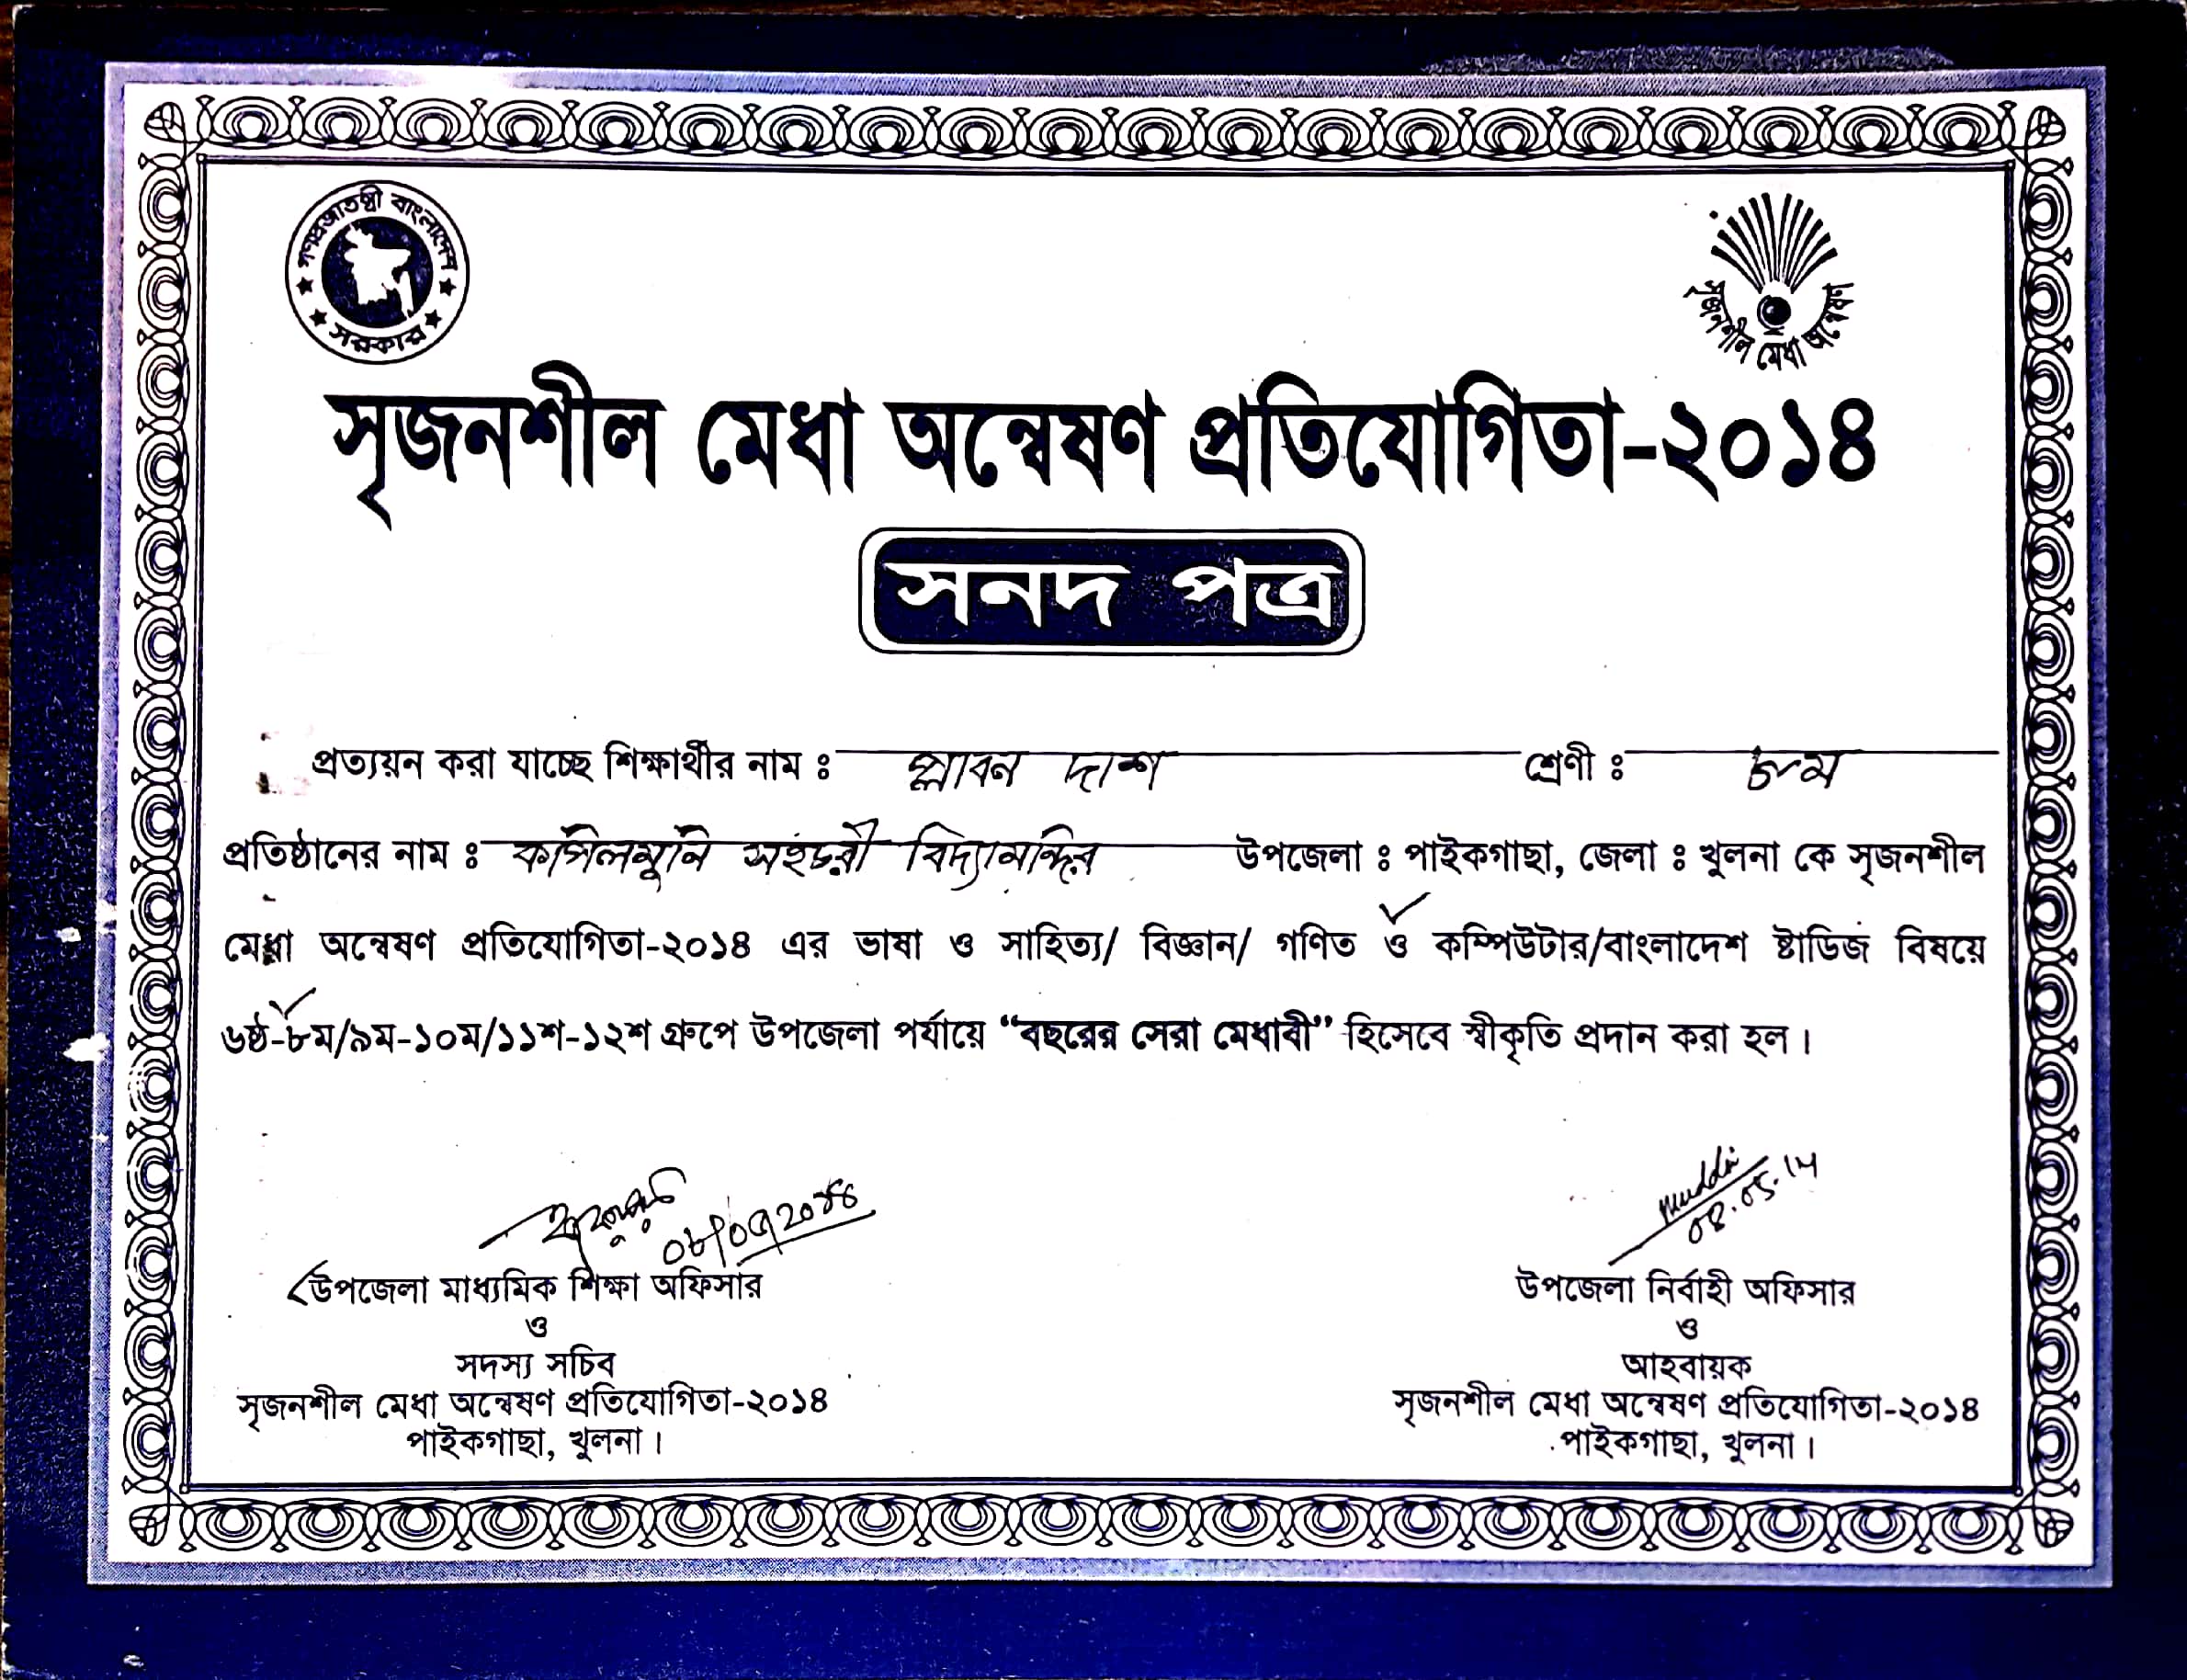 গণপ্রজাতন্ত্রী বাংলাদেশ
সরকার
সৃজনশীল মেধা অন্বেষণ
সৃজনশীল মেধা অন্বেষণ প্রতিযোগিতা-২০১৪
সনদ পত্র
প্রত্যয়ন করা যাচ্ছে শিক্ষার্থীর নাম ঃ প্লাবন দাশ শ্রেণী ঃ ৮ম
প্রতিষ্ঠানের নাম ঃ কপিলমুনি সহচরী বিদ্যামন্দির উপজেলা ঃ পাইকগাছা, জেলা ঃ খুলনা কে সৃজনশীল
মেধা অন্বেষণ প্রতিযোগিতা-২০১৪ এর ভাষা ও সাহিত্য/ বিজ্ঞান/ গণিত ও কম্পিউটার/বাংলাদেশ ষ্টাডিজ বিষয়ে
৬ষ্ঠ-৮ম/৯ম-১০ম/১১শ-১২শ গ্রুপে উপজেলা পর্যায়ে “বছরের সেরা মেধাবী” হিসেবে স্বীকৃতি প্রদান করা হল।
০৮/০৫/২০১৪
08.05.14
উপজেলা মাধ্যমিক শিক্ষা অফিসার
ও
সদস্য সচিব
সৃজনশীল মেধা অন্বেষণ প্রতিযোগিতা-২০১৪
পাইকগাছা, খুলনা।
উপজেলা নির্বাহী অফিসার
ও
আহবায়ক
সৃজনশীল মেধা অন্বেষণ প্রতিযোগিতা-২০১৪
পাইকগাছা, খুলনা।